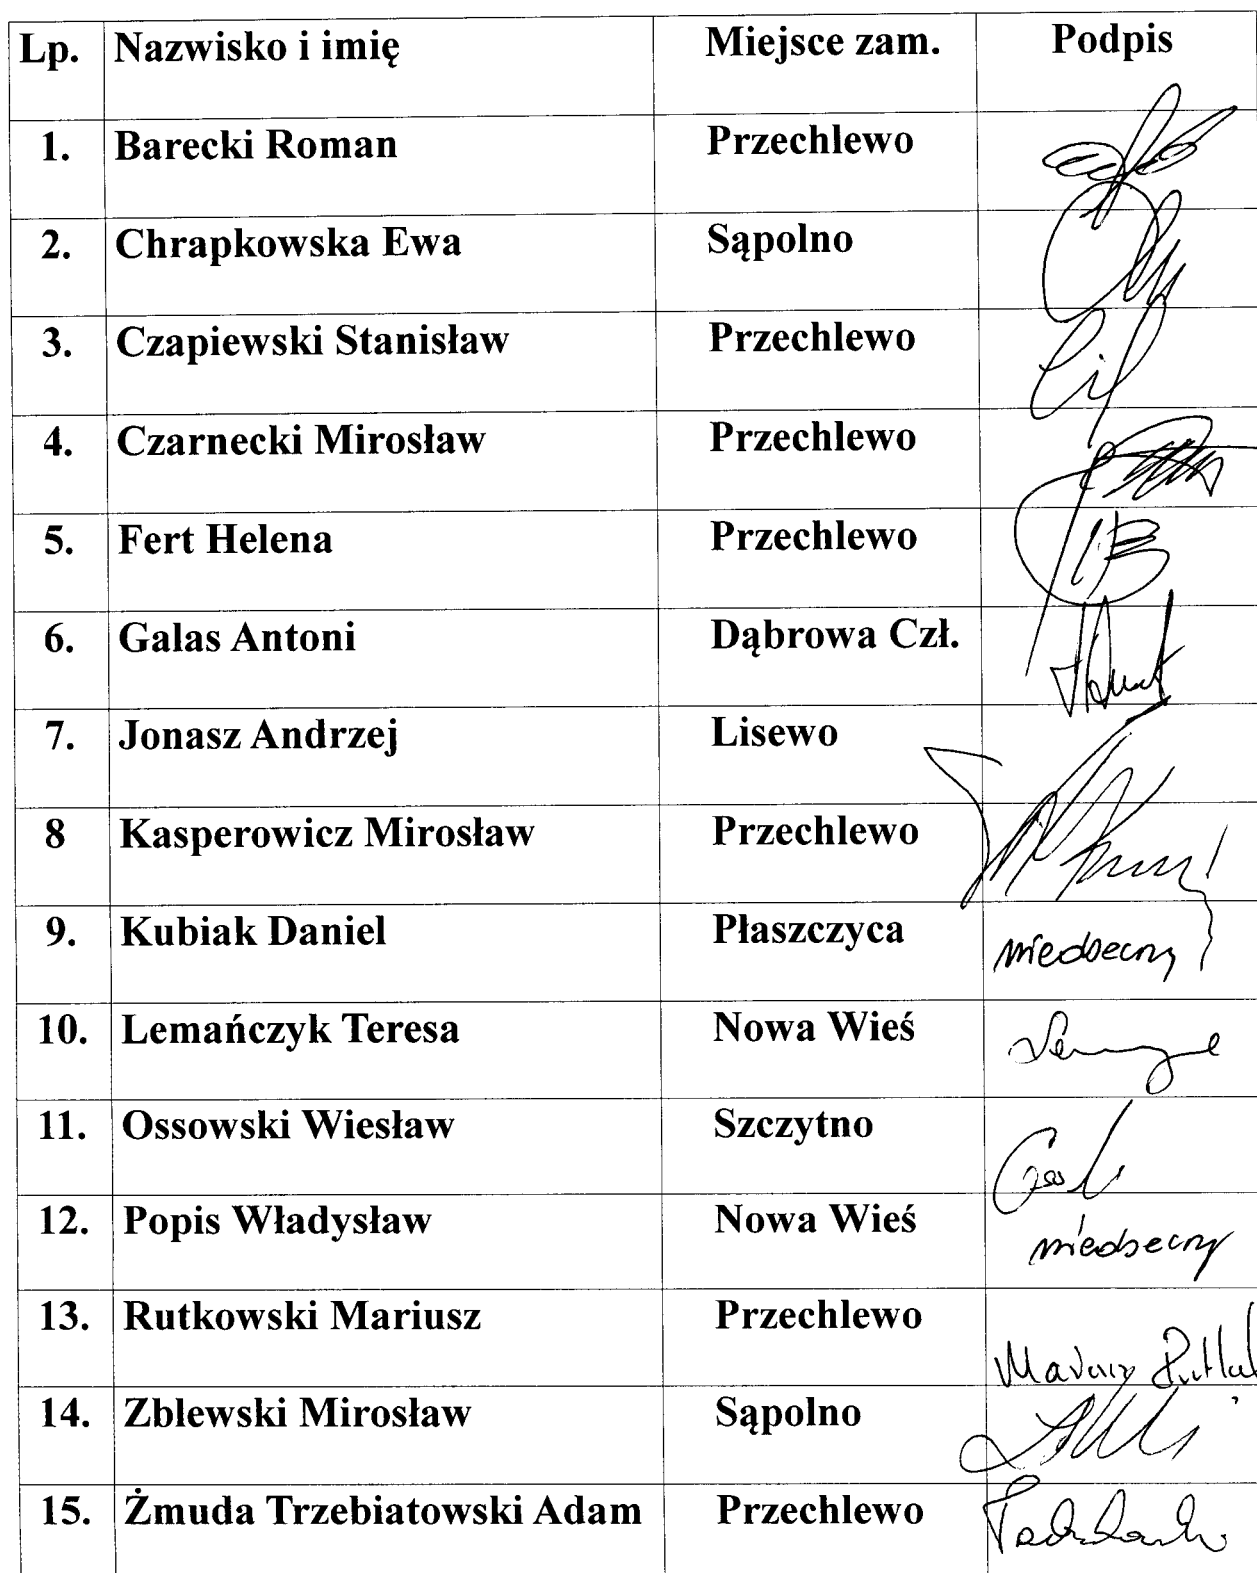 Lp. Nazwisko i imię Miejsce zam. Podpis
1. Barecki Roman Przechlewo
2. Chrapkowska Ewa Sąpolno
3. Czapiewski Stanisław Przechlewo
4. Czarnecki Mirosław Przechlewo
5. Fert Helena Przechlewo
6. Galas Antoni Dąbrowa Czł.
7. Jonasz Andrzej Lisewo
8 Kasperowicz Mirosław Przechlewo
9. Kubiak Daniel Płaszczyca nieobecny
10. Lemańczyk Teresa Nowa Wieś
11. Ossowski Wiesław Szczytno
12. Popis Władysław Nowa Wieś nieobecny
13. Rutkowski Mariusz Przechlewo
14. Zblewski Mirosław Sąpolno
15. Żmuda Trzebiatowski Adam Przechlewo